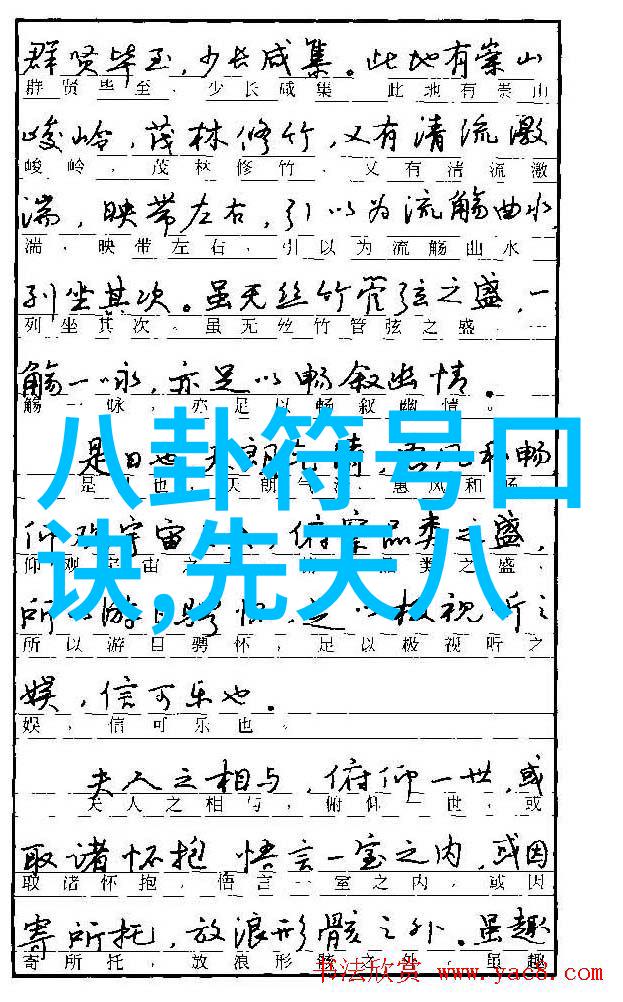 群贤毕至，少长咸集。此地有崇山
群贤毕至，少长咸集。此地有崇山
峻岭，茂林修竹，又有清流激
峻岭，茂林修竹，又有清流激
湍，映带左右，引以为流觞曲水，
湍，映带左右，引以为流觞曲水
列坐其次。虽无丝竹管弦之盛，一
列坐其次。虽无丝竹管弦之盛，一
觞一咏，亦足以畅叙幽情。
觞一咏，亦足以畅叙幽情。
八卦符号口
诀,先天八
是日也，天朗气清，惠风和畅
是日也，天朗气清，惠风和畅
仰观宇宙之，俯察品类之盛，
仰观宇宙之，类之盛，
所以游目骋怀，足以极视听之
所以游目骋怀，足以极视听之
娱，信可乐也。
娱，信可乐也。
夫人之相与，俯仰一世，或
夫人之相与，俯仰一世，或
取诸怀抱 悟言一室之内，或因
取诸怀抱，悟言一室之内，或因
寄所托，放浪形骸之外。虽趣
寄所托，放浪形骸之外。虽趣
书法欣赏 www.yac8.com